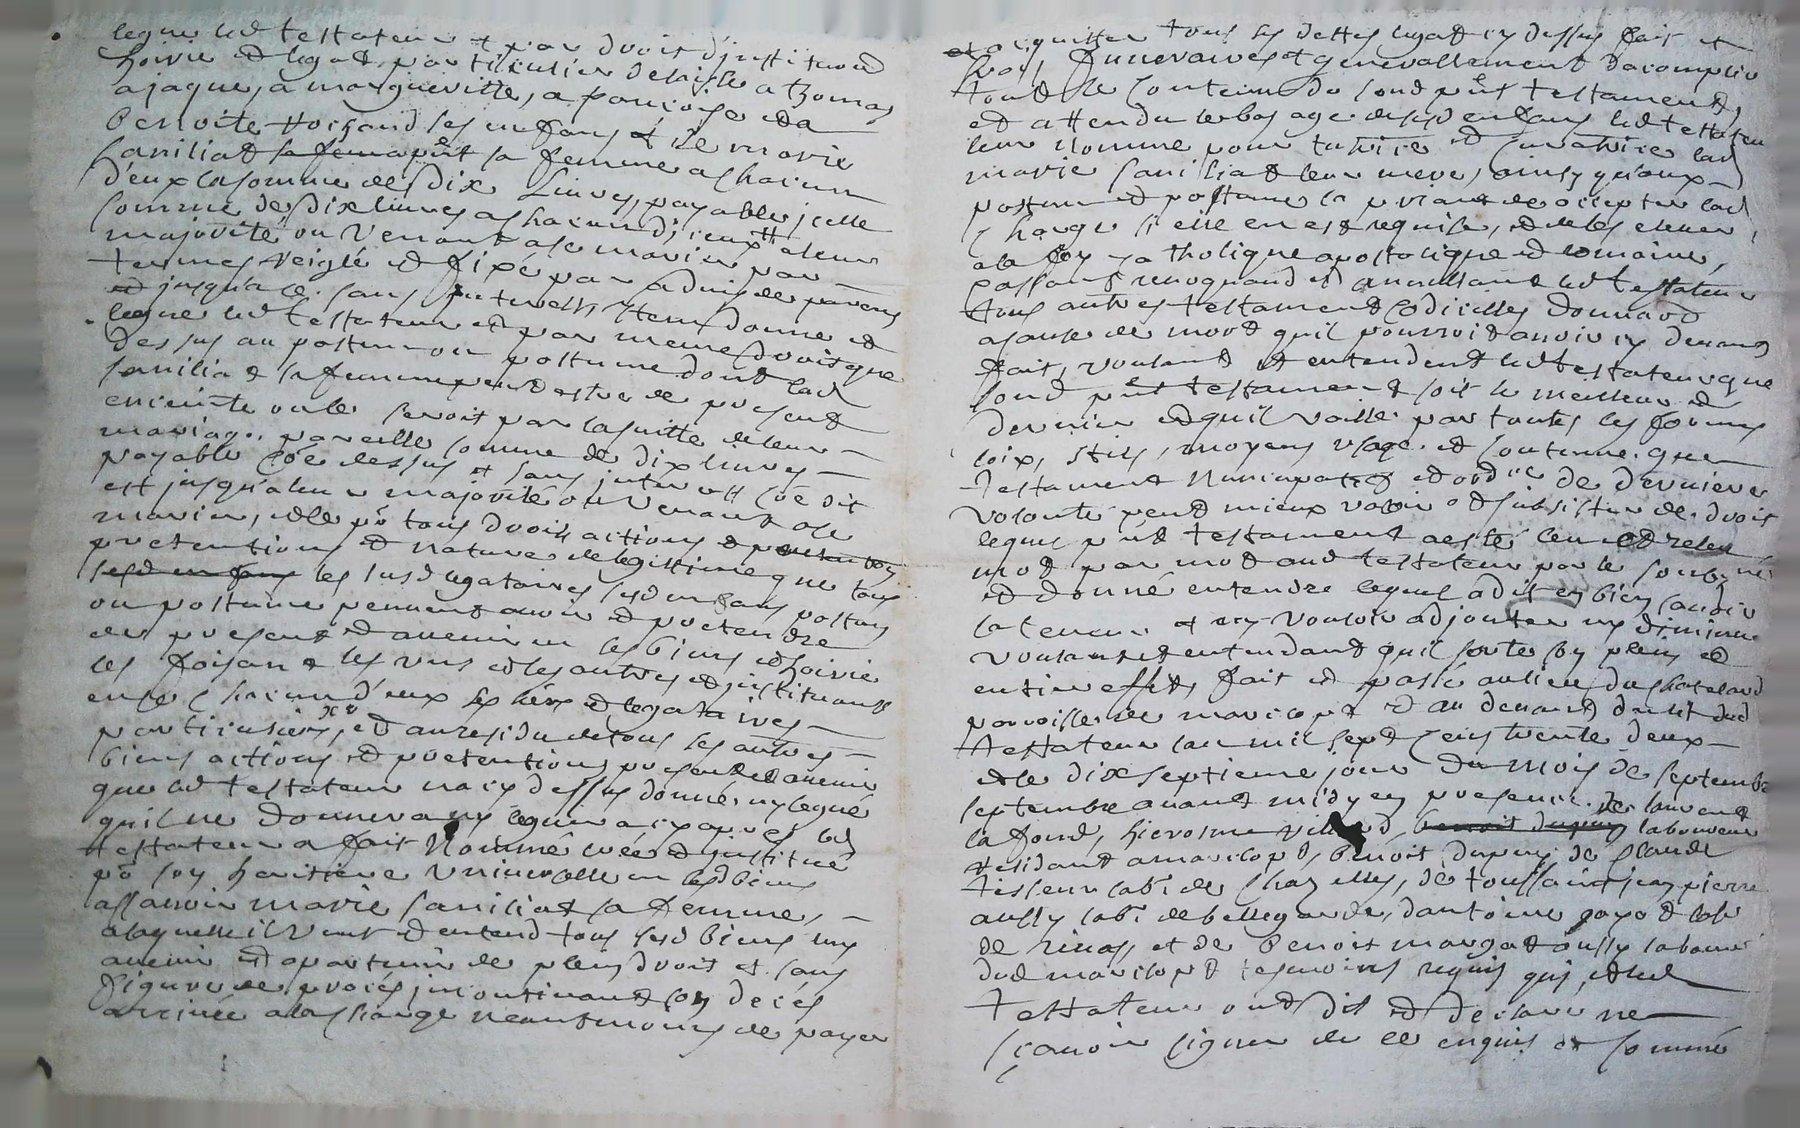 legue led testateur et par droit d'institution
hoirie et legat particulier delaisse a thomas
a jaque, a margueritte, a francoise et a
Benoite ses enfans et de marie
saniliat sa femme a chacun
d'eux la somme de dix livres, payable icelle
somme de dix livres a chacun d'iceux a leur
majorité ou venant a se marier par
termes reiglé et fixé par advis de parens
et jusqu'a ce sans interestz, Item donne et
legue led testateur et par meme droit que
dessus au postume ou postume dont lad
saniliat sa femme peut estre de present
enceinte ou le seroit par la suitte de leur
mariage pareille somme de dix livres
payable coe dessus et sans interestz coe dit
est jusqu'a leur majorité ou venant a se
marier, et ce pr tous droits actions
pretentions et nature de legitime que tous
les susd legataires sesd enfans postum
ou postume peuvent avoir et pretendre
de present et avenir en ses biens et hoirie
les faisant les uns et les autres et instituant
en ce chacun d'eux ses heirs et legataires
particuliers, et au residu de tous ses autres
biens actions et pretentions presents et avenir
que led testateur n'a cy dessus donné ny legué
qu'il ne donnera ny leguera cy apres led
testateur a fait nommé créé et institué
pr son heritiere universelle en sesd biens
assavoir marie saniliat sa femme,
a laquelle il veut et entend tous sesd biens
avenir et apartenir de plein droit et sans
figure de procès, incontinant son deces
arrivée a la charge neantmoins de payer
et acquitter tous ses dettes legats cy dessus fait et
frais funeraires et generallement d'acomplir
tout le contenu du sond pnt testament,
et attendu le bas age de sesd enfans led testateur
leur nomme pour tutrice et curatrice lad
marie saniliat leur mere, ainsy qu'aux
postume et postume la priant de accepter lad
charge si elle en est requise, et de les elever
a la foy catholique apostolique et romaine,
cassant revoquant et annullant led testateur
tous autres testament codicilles donnaons
a cause de mort qu'il pourroit avoir cy devant
fait, voulant et entendent led testateur que
sond pnt testament soit le meilleur et
dernier et qu'il vaille par toutes les formes
loix, stils, moyens usage et coutume que
testament nuncupatif et ordce de derniere
volonté peut mieux valoir et subsister de droit
lequel pnt testament a esté leu et releu
mot par mot aud testateur par le soubsigné
et donné entendre lequel a dit en bien savoir
la teneur et n'y vouloir adjouter ny diminuer
voulant et entendant qu'il sorte son plein et
entier effet, fait et passé au lieu du chatelard
parroisse de marcloptz et au devant du lit dud
testateur l'an mil sept cens trente deux
et le dix septieme jour du mois de septembre
septembre avant midy en presence de laurent
lafond, hierosme villard, benoit dupuy laboureur
residant a marclopt, benoit dupuy de claude
tisseur labr de chazelles, de toussaint jean pierre
aussy labr de bellegarde, d'antoine payot labr
de rivas et de benoit margat aussy laboureur
dud marclopt tesmoins requis qui, et led
testateur ont dit et declaré ne
sçavoir signer de ce enquis et sommé